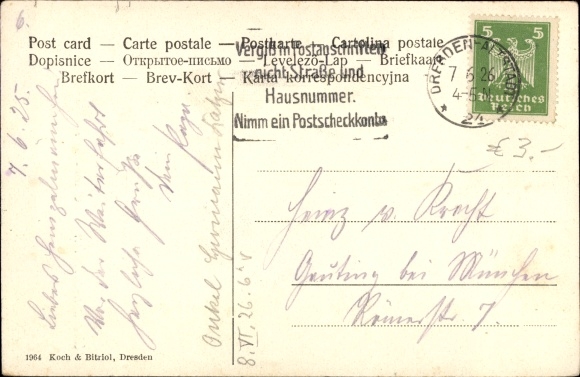 Post card — Carte postale — Postkarte — Cartolina postale
Dopisnice — Открытое-письмо — Levelező-Lap — Briefkaart
Brefkort — Brev-Kort — Karta korrespondencyjna
Vergiß in Postanschriften
nicht Straße und
Hausnummer.
Nimm ein Postscheckkonto
DRESDEN-ALTSTADT
7.6.26
4-5 N
* 24 *
5 5
Deutsches
Reich
€ 3.-
6.
7.6.25.
Herzliche Grüße
Onkel Hermann
8.VI.26.
Heinz v. Kracht
Gauting bei München
Römerstr 7.
1964 Koch & Bitriol, Dresden